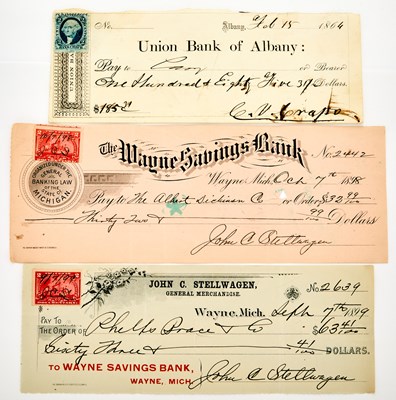 No. Albany, Feb 15 1864
Union Bank of Albany:
Pay to or Bearer
One Hundred & Eighty Five Dollars.
$185
UNION BANK
The Wayne Savings Bank
No. 2442
ORGANIZED UNDER THE GENERAL BANKING LAW OF THE STATE OF MICHIGAN.
Wayne, Mich. Oct 7th 1898
Pay to The Albert Dickinson Co or Order, $32 99/100
Thirty Two & 99/100 Dollars
John C. Stellwagen
JOHN C. STELLWAGEN
GENERAL MERCHANDISE.
No 2639
Wayne, Mich. Sept 7th 1899
PAY TO THE ORDER OF Phelps Brace & Co $63 41/100
Sixty Three & 41/100 DOLLARS.
TO WAYNE SAVINGS BANK,
WAYNE, MICH.
John C Stellwagen